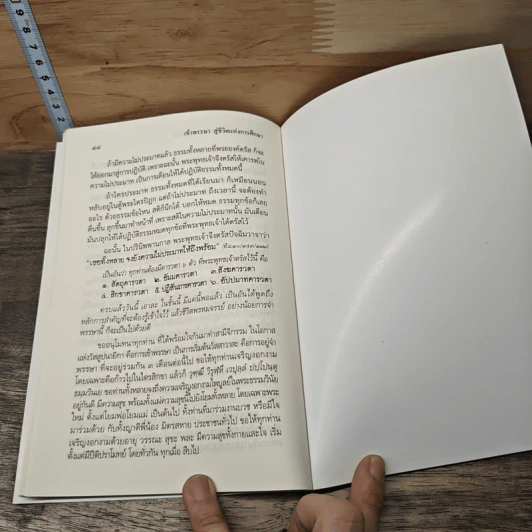 ๔๘
เข้าพรรษา สู่ชีวิตแห่งการศึกษา
ถ้ามีความไม่ประมาทแล้ว ธรรมทั้งหลายที่พระองค์ตรัส ก็จะ
ได้ออกมาสู่การปฏิบัติ เพราะฉะนั้น พระพุทธเจ้าจึงตรัสให้เคารพใน
ความไม่ประมาท เป็นการเตือนให้ได้ปฏิบัติธรรมทั้งหมดนี้
ถ้าใครประมาท ธรรมทั้งหมดที่ได้เรียนมา ก็เหมือนนอน
หลับอยู่ในตู้พระไตรปิฎก แต่ถ้าไม่ประมาท ถึงเวลานี้ จะต้องทำ
อะไร ด้วยธรรมข้อไหน สติก็นึกได้ บอกให้หมด ธรรมทุกข้อก็เลย
ตื่นขึ้น ลุกขึ้นมาทำหน้าที่ เพราะสติในความไม่ประมาทนั้น มันเตือน
มันปลุกให้ได้ปฏิบัติธรรมหมดทุกข้อที่พระพุทธเจ้าได้ตรัสไว้
ฉะนั้น ในปรินิพพานกาล พระพุทธเจ้าจึงตรัสปัจฉิมวาจาว่า
“เธอทั้งหลาย จงยังความไม่ประมาทให้ถึงพร้อม”
เป็นอันว่า ทุกท่านต้องมีคารวตา ๖ ตัว ที่พระพุทธเจ้าตรัสไว้นี้ คือ
๑. สัตถุคารวตา ๒. ธัมมคารวตา ๓.สังฆคารวตา
๔. สิกขาคารวตา ๕. ปฏิสันถารคารวตา ๖. อัปปมาทคารวตา
ครบแล้ววันนี้ เอาละ ในชั้นนี้ มีแค่นี้พอแล้ว เป็นอันได้พูดถึง
หลักการสำคัญที่จะต้องรู้เข้าใจไว้ แล้วชีวิตพรหมจรรย์ อย่างน้อยการจำ
พรรษานี้ ก็จะเป็นไปด้วยดี
ขออนุโมทนาทุกท่าน ที่ได้พร้อมใจกันมาทำสามีจิกรรม ในโอกาส
แห่งวัสสูปนายิกา คือการเข้าพรรษา เป็นการเริ่มต้นวัสสาวาสะ คือการอยู่จำ
พรรษา ที่จะอยู่ร่วมกัน ๓ เดือนต่อนี้ไป ขอให้ทุกท่านเจริญงอกงาม
โดยเฉพาะคือก้าวไปในไตรสิกขา แล้วก็ วุฑฺฒึ วิรูฬฺหึ เวปุลฺลํ ปปฺโปนฺตุ
ขอท่านทั้งหลายจงถึงความเจริญงอกงามไพบูลย์ในพระธรรมวินัย
อยู่กันดี มีความสุข พร้อมทั้งแผ่ความสุขนี้ไปยังโยมทั้งหลาย โดยเฉพาะพระ
ใหม่ ตั้งแต่โยมพ่อโยมแม่ เป็นต้นไป ทั้งท่านที่มาร่วมงานบวช หรือมีใจ
มาร่วมด้วย กับทั้งญาติพี่น้อง มิตรสหาย ประชาชนทั่วไป ขอให้ทุกท่าน
เจริญงอกงามด้วยอายุ วรรณะ สุขะ พละ มีความสุขทั้งกายและใจ เริ่ม
ตั้งแต่มีปีติปราโมทย์ โดยทั่วกัน ทุกเมื่อ สืบไป